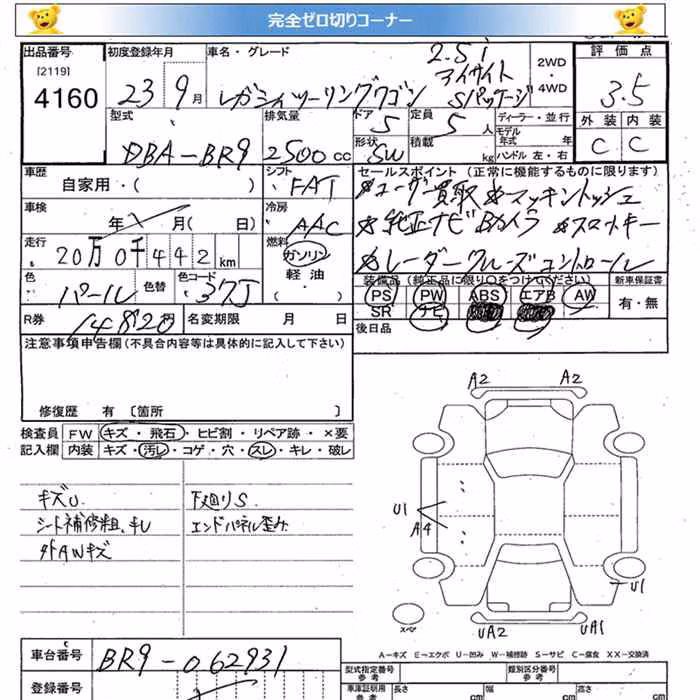 完全ゼロ切りコーナー
出品番号 初度登録年月 車名・グレード 2.5i 2WD・4WD 評価点
[2119] 4160 23 9月 レガシィツーリングワゴン アイサイト Sパッケージ 3.5
型式 排気量 ドア 5 定員 5人 ディーラー・並行 外装 内装
DBA-BR9 2500cc 形状 SW 積載 kg モデル年式 年 ハンドル 左・右 C C
車歴 シフト FAT セールスポイント (正常に機能するものに限ります)
自家用・( ) ☆ユーザー買取 ☆マッキントッシュ
車検 年 月( 日) 冷房 AAC ☆純正ナビBカメラ ☆スマートキー
走行 20万0千442km 燃料 ガソリン 軽油・( ) ☆レーダークルーズコントロール
色 パール 色替 色コード 37J 装備品 (純正品に限り○をつけてください) 新車保証書
PS PW ABS エアB AW 有・無
SR ナビ
R券 14820 名変期限 月 日 後日品
注意事項申告欄(不具合内容等は具体的に記入して下さい)
修復歴 有 〔箇所 〕
検査員 FW キズ・飛石・ヒビ割・リペア跡・×要
記入欄 内装 キズ・汚レ・コゲ・穴・スレ・キレ・破レ
キズU 下廻りS
シート補修粗、キレ エンドパネル歪み
外AWキズ
A2 A2
U1
A4
U1
UA2 UA1
スペア
A-キズ E-エクボ U-凹み W-補修跡 S-サビ C-腐食 XX-交換済
車台番号 BR9-062931
型式指定番号 参考 類別区分番号 参考
登録番号 車庫証明用 参考 長さ cm 幅 cm 高さ cm